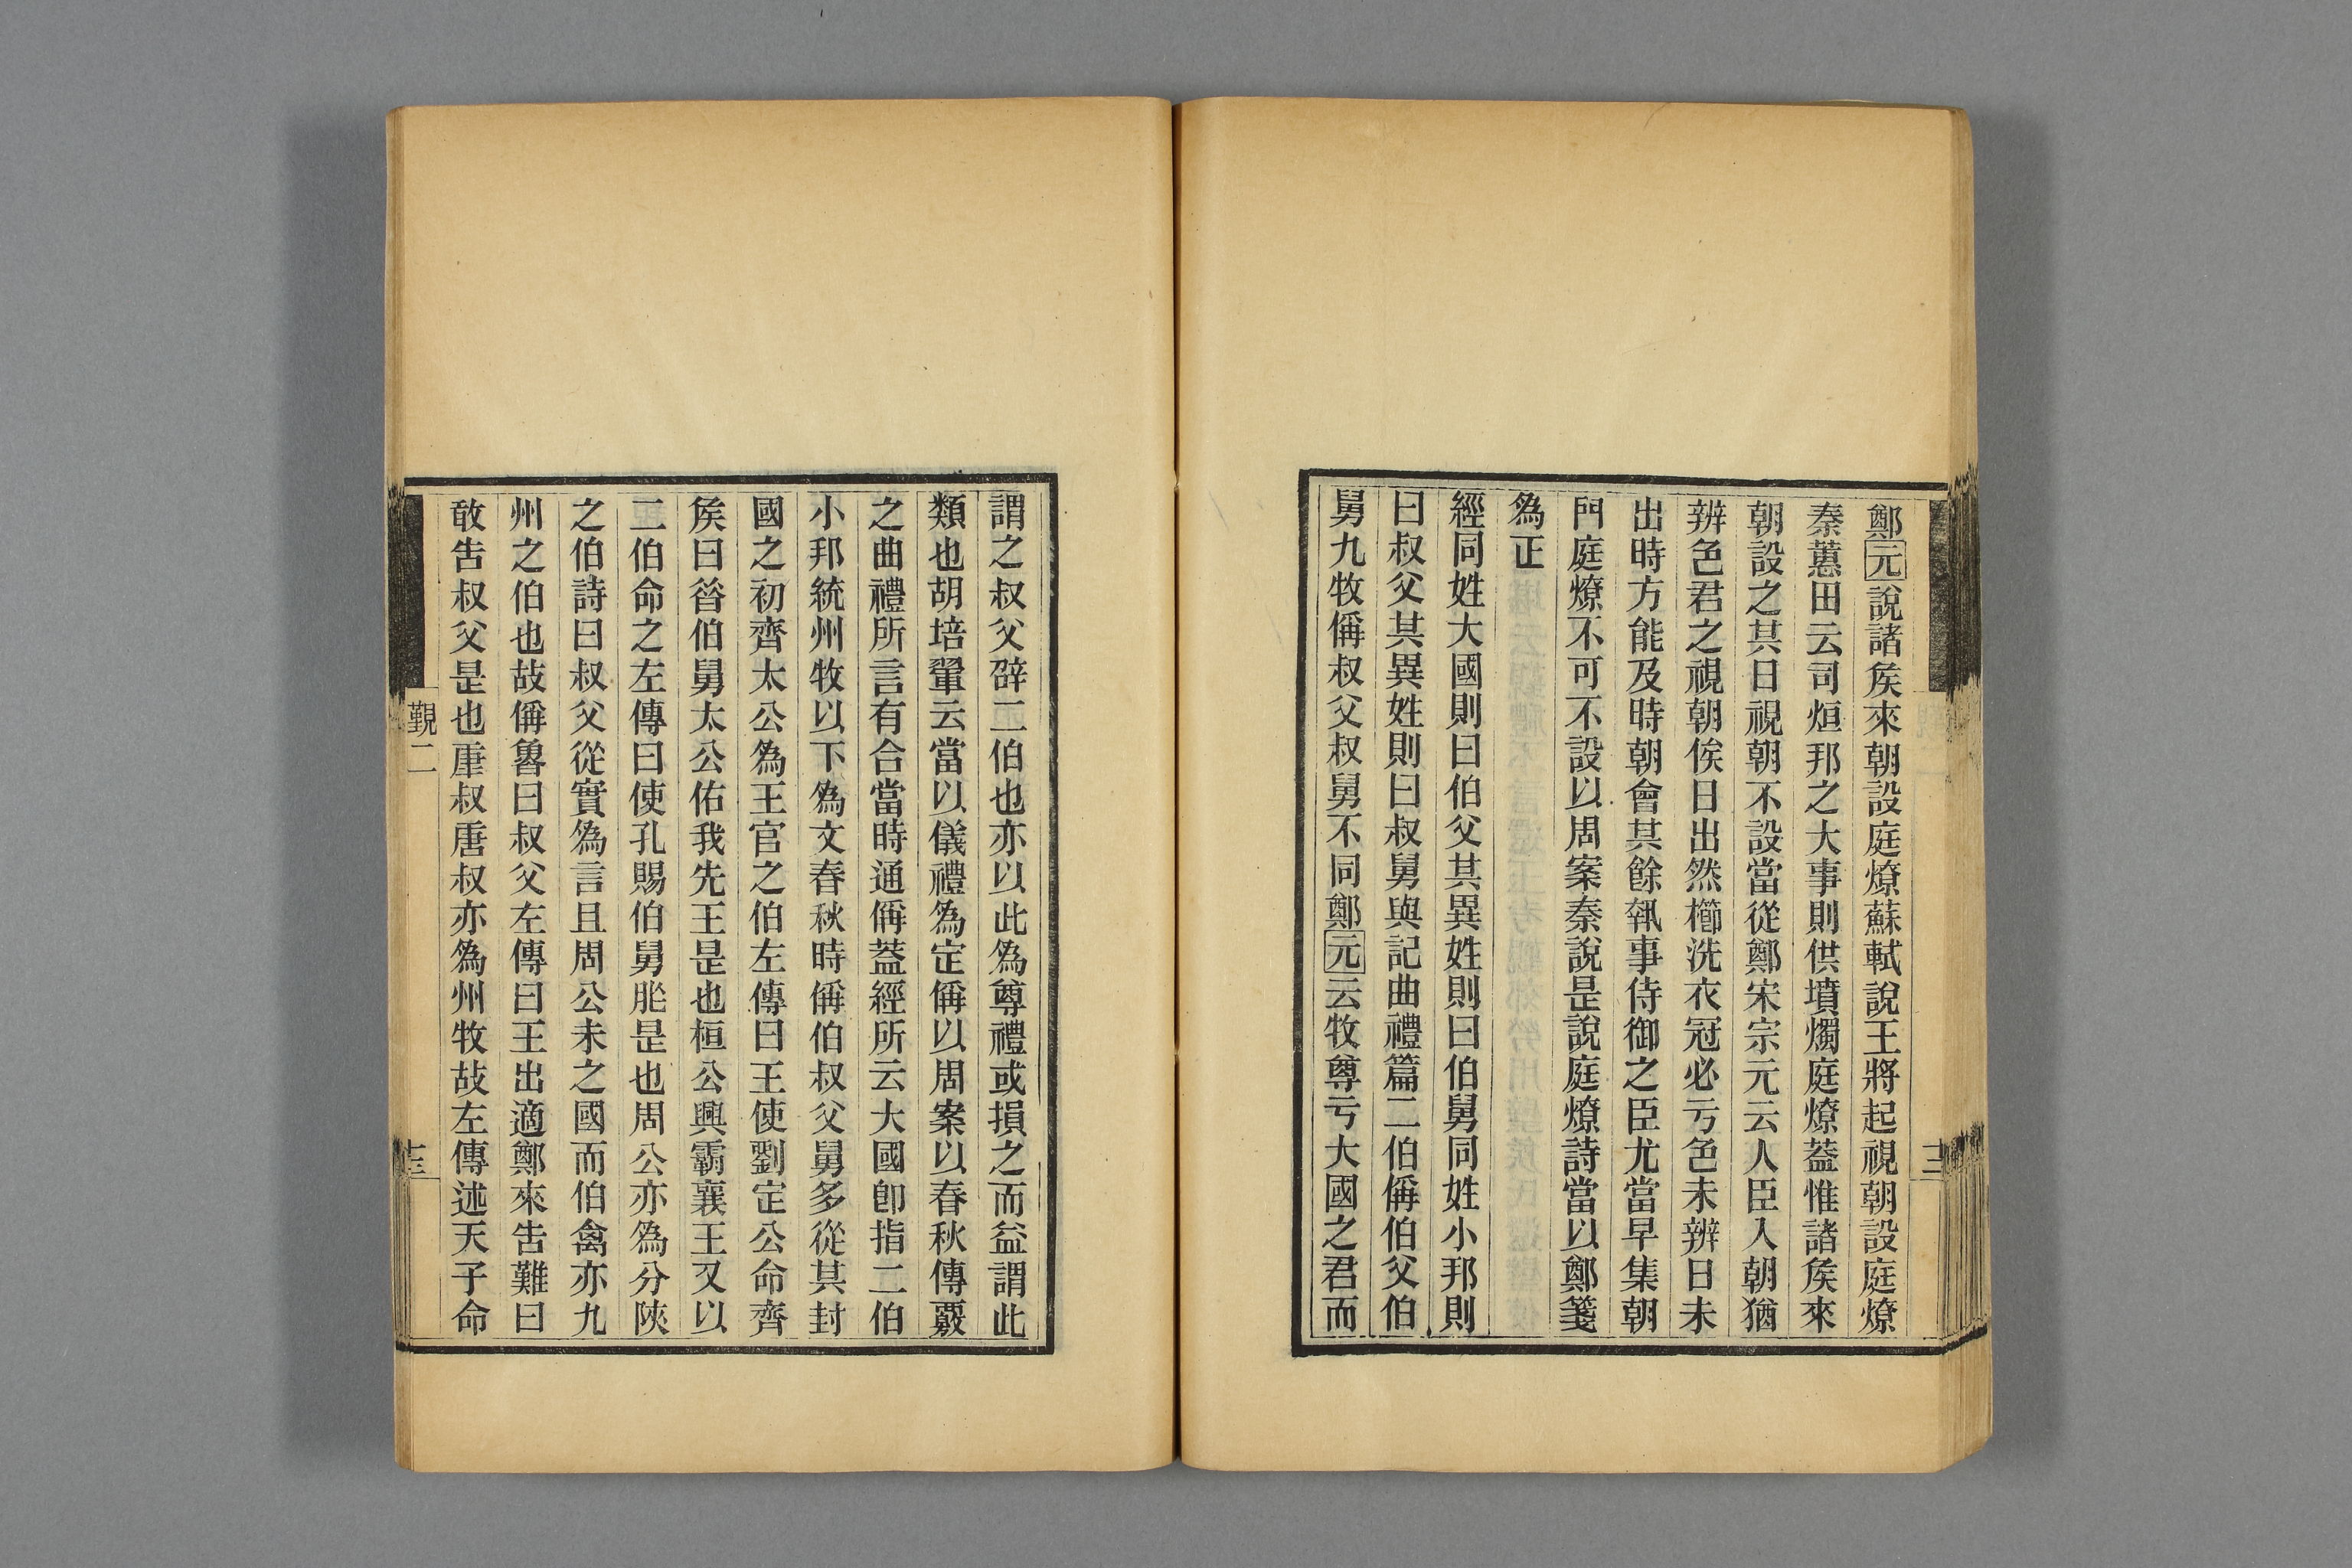 鄭元說諸矦來朝設庭燎蘇軾說王將起視朝設庭燎
秦蕙田云司烜邦之大事則供墳燭庭燎葢惟諸矦來
朝設之其日視朝朝不設當從鄭宋宗元云人臣入朝猶
辨色君之視朝俟日出然櫛洗衣冠必亏色未辨日未
出時方能及時朝會其餘執事侍御之臣尤當早集朝
門庭燎不可不設以周案秦說是說庭燎詩當以鄭箋
爲正
經同姓大國則曰伯父其異姓則曰伯舅同姓小邦則
曰叔父其異姓則曰叔舅與記曲禮篇二伯偁伯父伯
舅九牧偁叔父叔舅不同鄭元云牧尊亏大國之君而
謂之叔父辟二伯也亦以此爲尊禮或損之而益謂此
類也胡培翬云當以儀禮爲定偁以周案以春秋傳覈
之曲禮所言有合當時通偁葢經所云大國卽指二伯
小邦統州牧以下爲文春秋時偁伯叔父舅多從其封
國之初齊太公爲王官之伯左傳曰王使劉定公命齊
矦曰昝伯舅太公佑我先王是也桓公興霸襄王又以
二伯命之左傳曰使孔賜伯舅胙是也周公亦爲分陝
之伯詩曰叔父從實爲言且周公未之國而伯禽亦九
州之伯也故偁魯曰叔父左傳曰王出適鄭來告難曰
敢告叔父是也康叔唐叔亦爲州牧故左傳述天子命
覲二
十二
十三